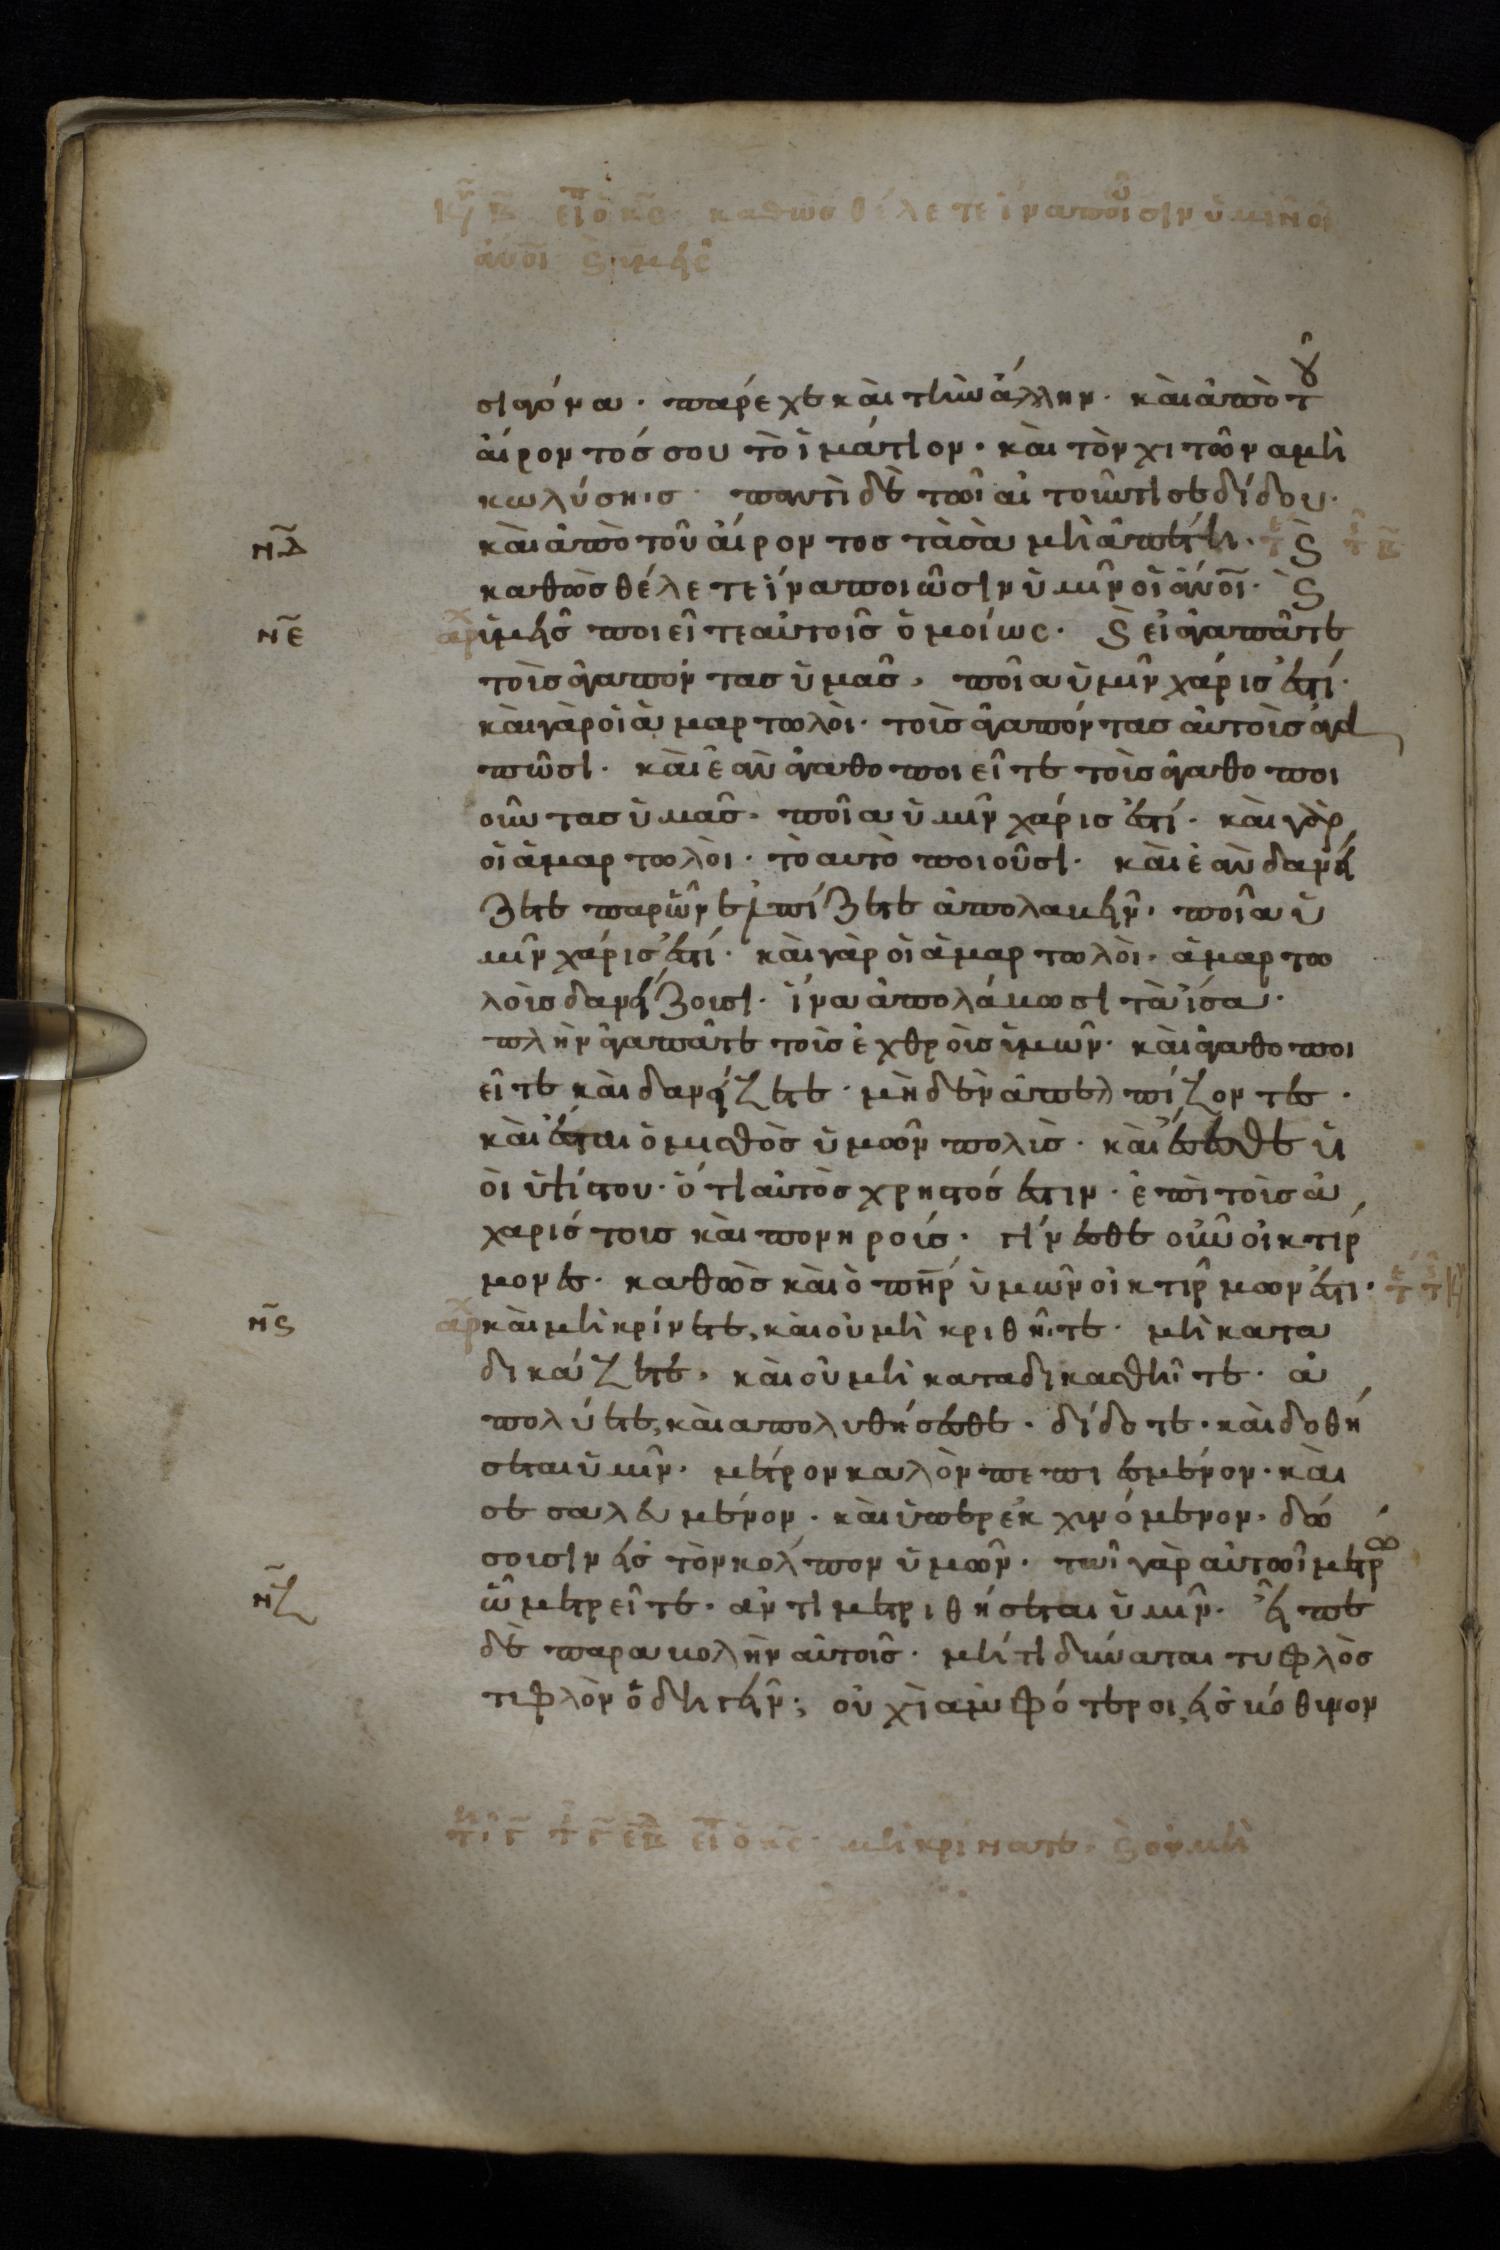 κυ β ειπ ο κς καθως θελετε ινα ποιουσιν υμιν οι
ανοι ϛ ημεις
σιαγόνα· πάρεχε καὶ τὴν ἄλλην· καὶ ἀπὸ τοῦ
αἴροντός σου τὸ ἱμάτιον· καὶ τὸν χιτῶνα μὴ
κωλύσηισ· παντὶ δὲ τῶι αἰτοῦντί σε δίδου·
ν̃δ καὶ ἀπὸ τοῦ αἴροντοσ τὰ σὰ μὴ ἀπαίτει· ϛ
καθὼσ θέλετε ἵνα ποιῶσιν ὑμῖν οἱ ἄνοι· ϛ
ν̃ε αρχ ὑμεῖσ ποιεῖτε αὐτοῖσ ὁμοίως· ϛ εἰ ἀγαπᾶτε
τοὺσ ἀγαπόντασ ὑμᾶσ, ποῖα ὑμῖν χάρισ ἐστί·
καὶ γὰρ οἱ ἁμαρτωλοὶ· τοὺσ ἀγαπόντασ αὐτοὺσ ἀγα
πῶσι· καὶ ἐὰν ἀγαθοποιεῖτε τοὺσ ἀγαθοποι
οῦντασ ὑμᾶσ· ποῖα ὑμῖν χάρισ ἐστί· καὶ γὰρ
οἱ ἁμαρτωλοὶ· τὸ αυτὸ ποιοῦσι· καὶ ἐὰν δανεί
ζετε παρ ὧν ἐλπίζετε ἀπολαβεῖν· ποῖα ὑ
μῖν χάρισ ἐστί· καὶ γὰρ οἱ ἁμαρτωλοὶ· ἁμαρτω
λοῖσ δανείζουσι· ἵνα ἀπολάβωσι τὰ ἴσα·
πλὴν ἀγαπᾶτε τοὺσ ἐχθροὺσ ὑμῶν· καὶ ἀγαθοποι
εῖτε καὶ δανείζετε· μὴδὲν ἀπελπίζοντεσ·
καὶ ἔσται ὁ μισθὸσ ὑμῶν πολὺσ· καὶ ἔσεσθε ὑι
οὶ ὑψίστου· ὅτι αὐτὸσ χρηστόσ ἐστιν· ἐπὶ τοὺσ ἀ
χαρίστουσ καὶ πονηρούσ· γίνεσθε οὖν οἰκτίρ
μονεσ· καθὼσ καὶ ὁ πη̃ρ ὑμῶν οἰκτίρμων ἐστι·
ν̃ϛ αρχ καὶ μὴ κρίνετε, καὶ οὐ μὴ κριθῆτε· μὴ κατα
δικάζετε, καὶ οὐ μὴ καταδικασθῆτε· ἀ
πολύετε, καὶ απολυθήσεσθε· δίδοτε· καὶ δοθή
σεται ὑμῖν· μέτρον καλὸν πεπιεσμένον· καὶ
σεσαλευμένον· καὶ ὑπερεκχυνόμενον· δώ
σουσιν εἰσ τὸν κολ́πον ὑμῶν· τῶι γὰρ αὐτῶι μέτρω
ν̃ζ ὧ μετρεῖτε· αντιμετριθήσεται ὑμῖν· εἶπε
δὲ παραβολὴν αὐτοῖσ· μήτι δύναται τυφλὸσ
τυφλὸν ὁδηγεῖν; οὐχὶ αμφότεροι εἰσ βόθυνον
ειπ ο κς· μὴ κρίνατε, ϛ οὐ μὴ